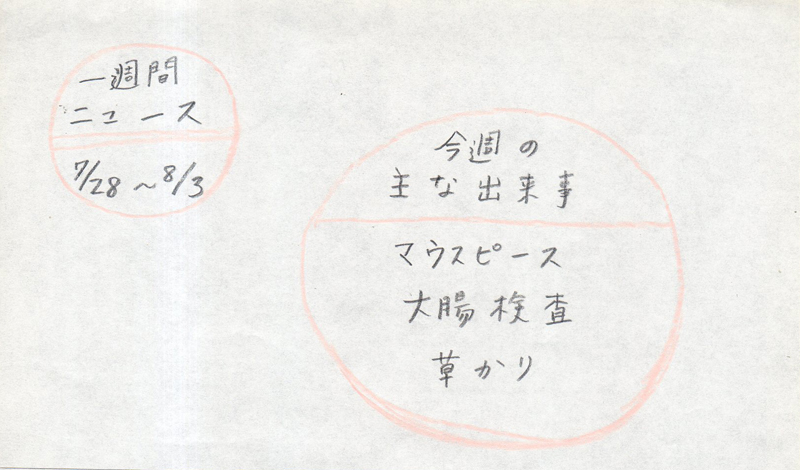 一週間
ニュース
7/28～8/3
今週の
主な出来事
マウスピース
大腸検査
草かり